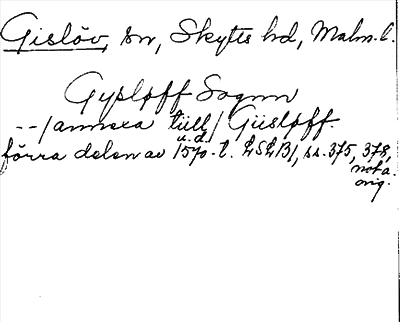 Gislöv, sn, Skytts hd, Malm. l.
Gyslpff Sognn
--/annexa tüll/ Güslpff.
u.d.
förra delen av 1570-t. LSLB1, ss. 375, 378,
not a.
orig.